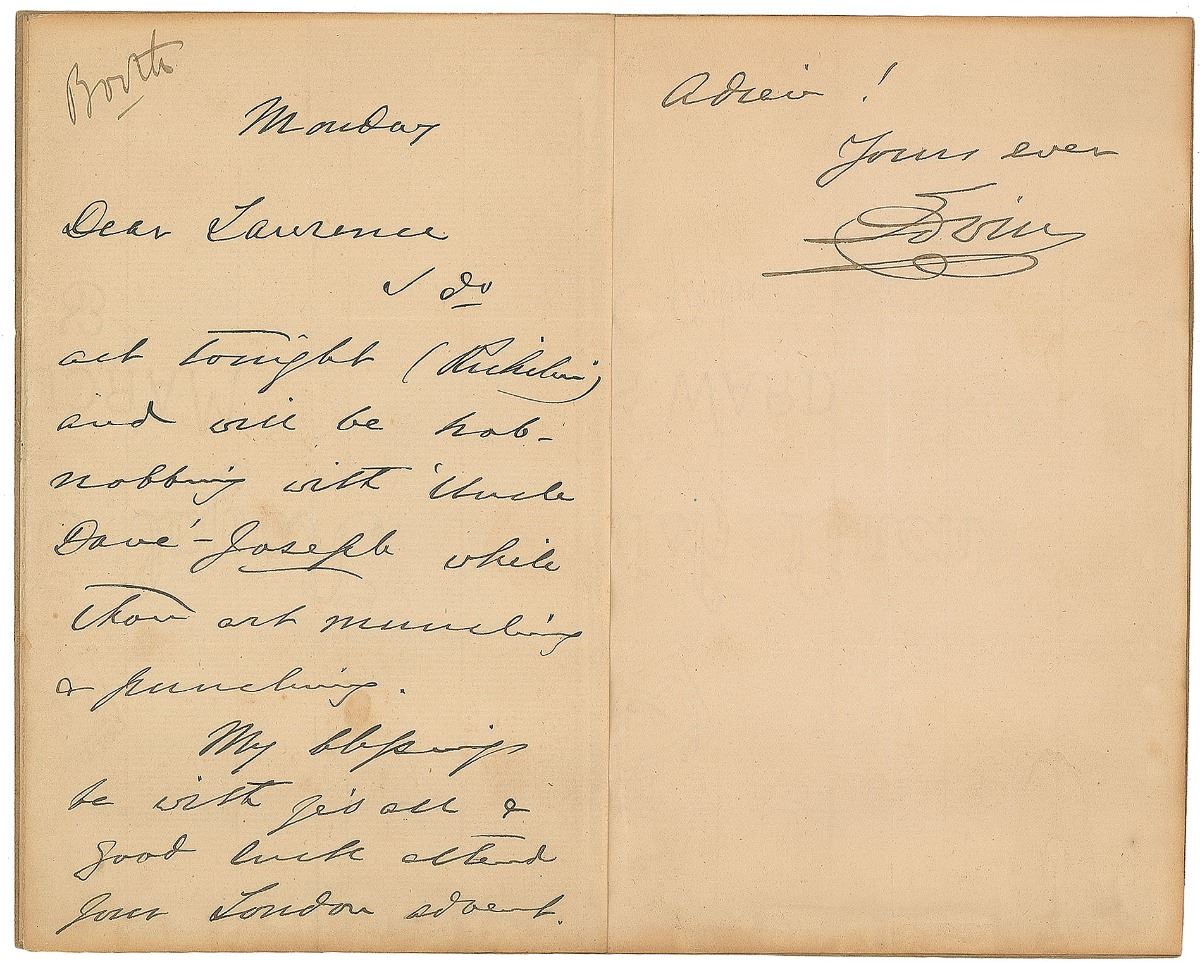 Booth
Monday
Dear Lawrence
I do
act tonight (Richelieu)
and will be hob-
nobbing with 'Uncle
Dave'-Joseph while
Thou art munching
& punching.
My blessings
be with ye's all &
good luck attend
your London advent.
Adieu!
Yours ever
Edwin